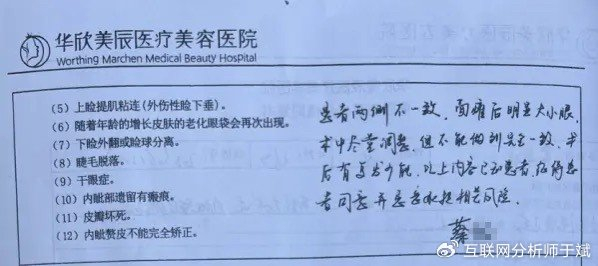 华欣美辰医疗美容医院
Worthing Marchen Medical Beauty Hospital
(5) 上睑提肌粘连(外伤性睑下垂)。
(6) 随着年龄的增长皮肤的老化眼袋会再次出现。
(7) 下睑外翻或睑球分离。
(8) 睫毛脱落。
(9) 干眼症。
(10) 内眦部遗留有瘢痕。
(11) 皮瓣坏死。
(12) 内眦赘皮不能完全矫正。
患者两侧不一致,闭眼后明显大小眼,
术中尽量调整,但不能做到完全一致,术
后有 可能,以上内容已和患者
者同意并愿意承担相关风险。
蔡
@互联网分析师于斌